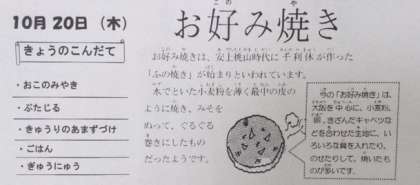 10月20日（木）
きょうのこんだて
・おこのみやき
・ぶたじる
・きゅうりのあまずづけ
・ごはん
・ぎゅうにゅう
お好み焼き
お好み焼きは、安土桃山時代に千利休が作った
「ふの焼き」が始まりといわれています。
水でといた小麦粉を薄く最中の皮の
ように焼き、みそを
ぬって、ぐるぐる
巻きにしたもの
だったようです。
今の「お好み焼き」は、
大阪を中心に、小麦粉、
卵、きざんだキャベツな
どを合わせた生地に、い
ろいろな具を入れたり、
のせたりして、焼いたも
のが多いです。